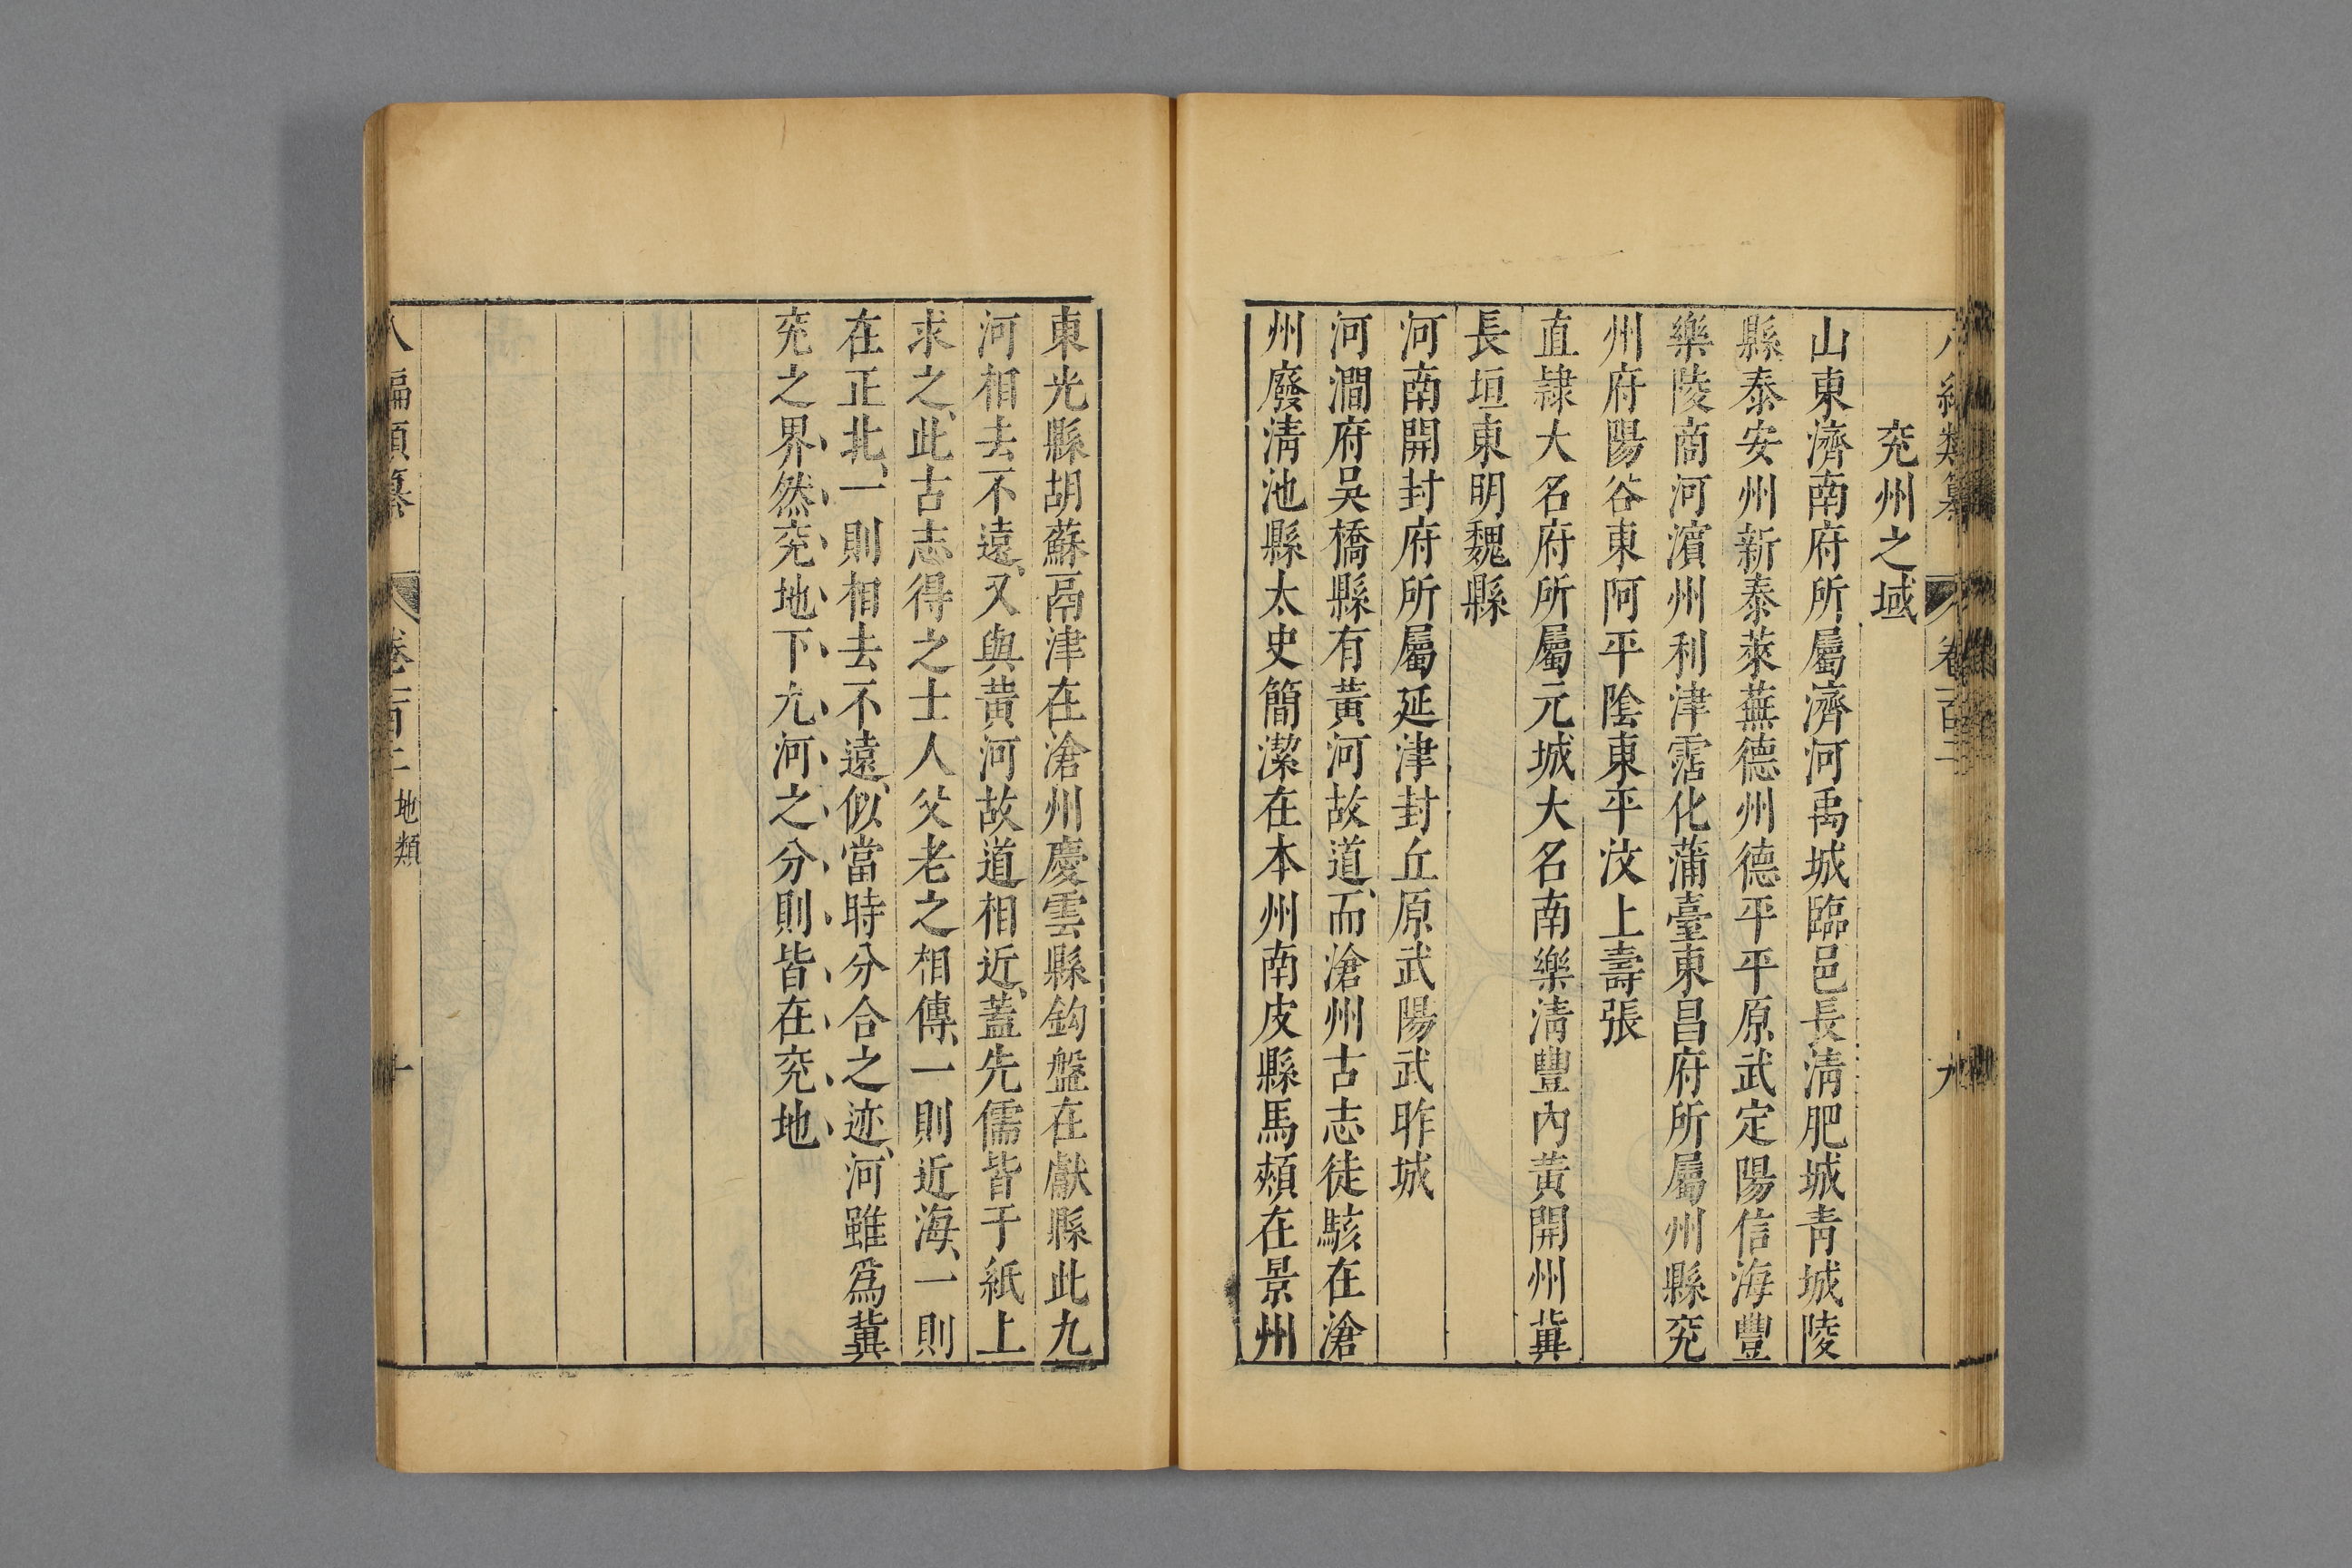 八編類纂 卷百二 九
兖州之域
山東濟南府所屬濟河禹城臨邑長淸肥城靑城陵
縣泰安州新泰萊蕪德州德平平原武定陽信海豐
樂陵商河濱州利津霑化蒲臺東昌府所屬州縣兖
州府陽谷東阿平陰東平汶上壽張
直隷大名府所屬元城大名南樂淸豐內黃開州冀
長垣東明魏縣
河南開封府所屬延津封丘原武陽武昨城
河澗府吳橋縣有黃河故道、而滄州古志徒駭在滄
州廢淸池縣太史簡潔在本州南皮縣馬頰在景州
東光縣胡蘇鬲津在滄州慶雲縣鈎盤在獻縣此九
河相去不遠、又與黃河故道相近、蓋先儒皆于紙上
求之、此古志得之士人父老之相傳、一則近海、一則
在正北、一則相去不遠、似當時分合之迹、河雖爲冀
兖之界、然兖地下九河之分則皆在兖地
八編類纂 卷百二 地類 十